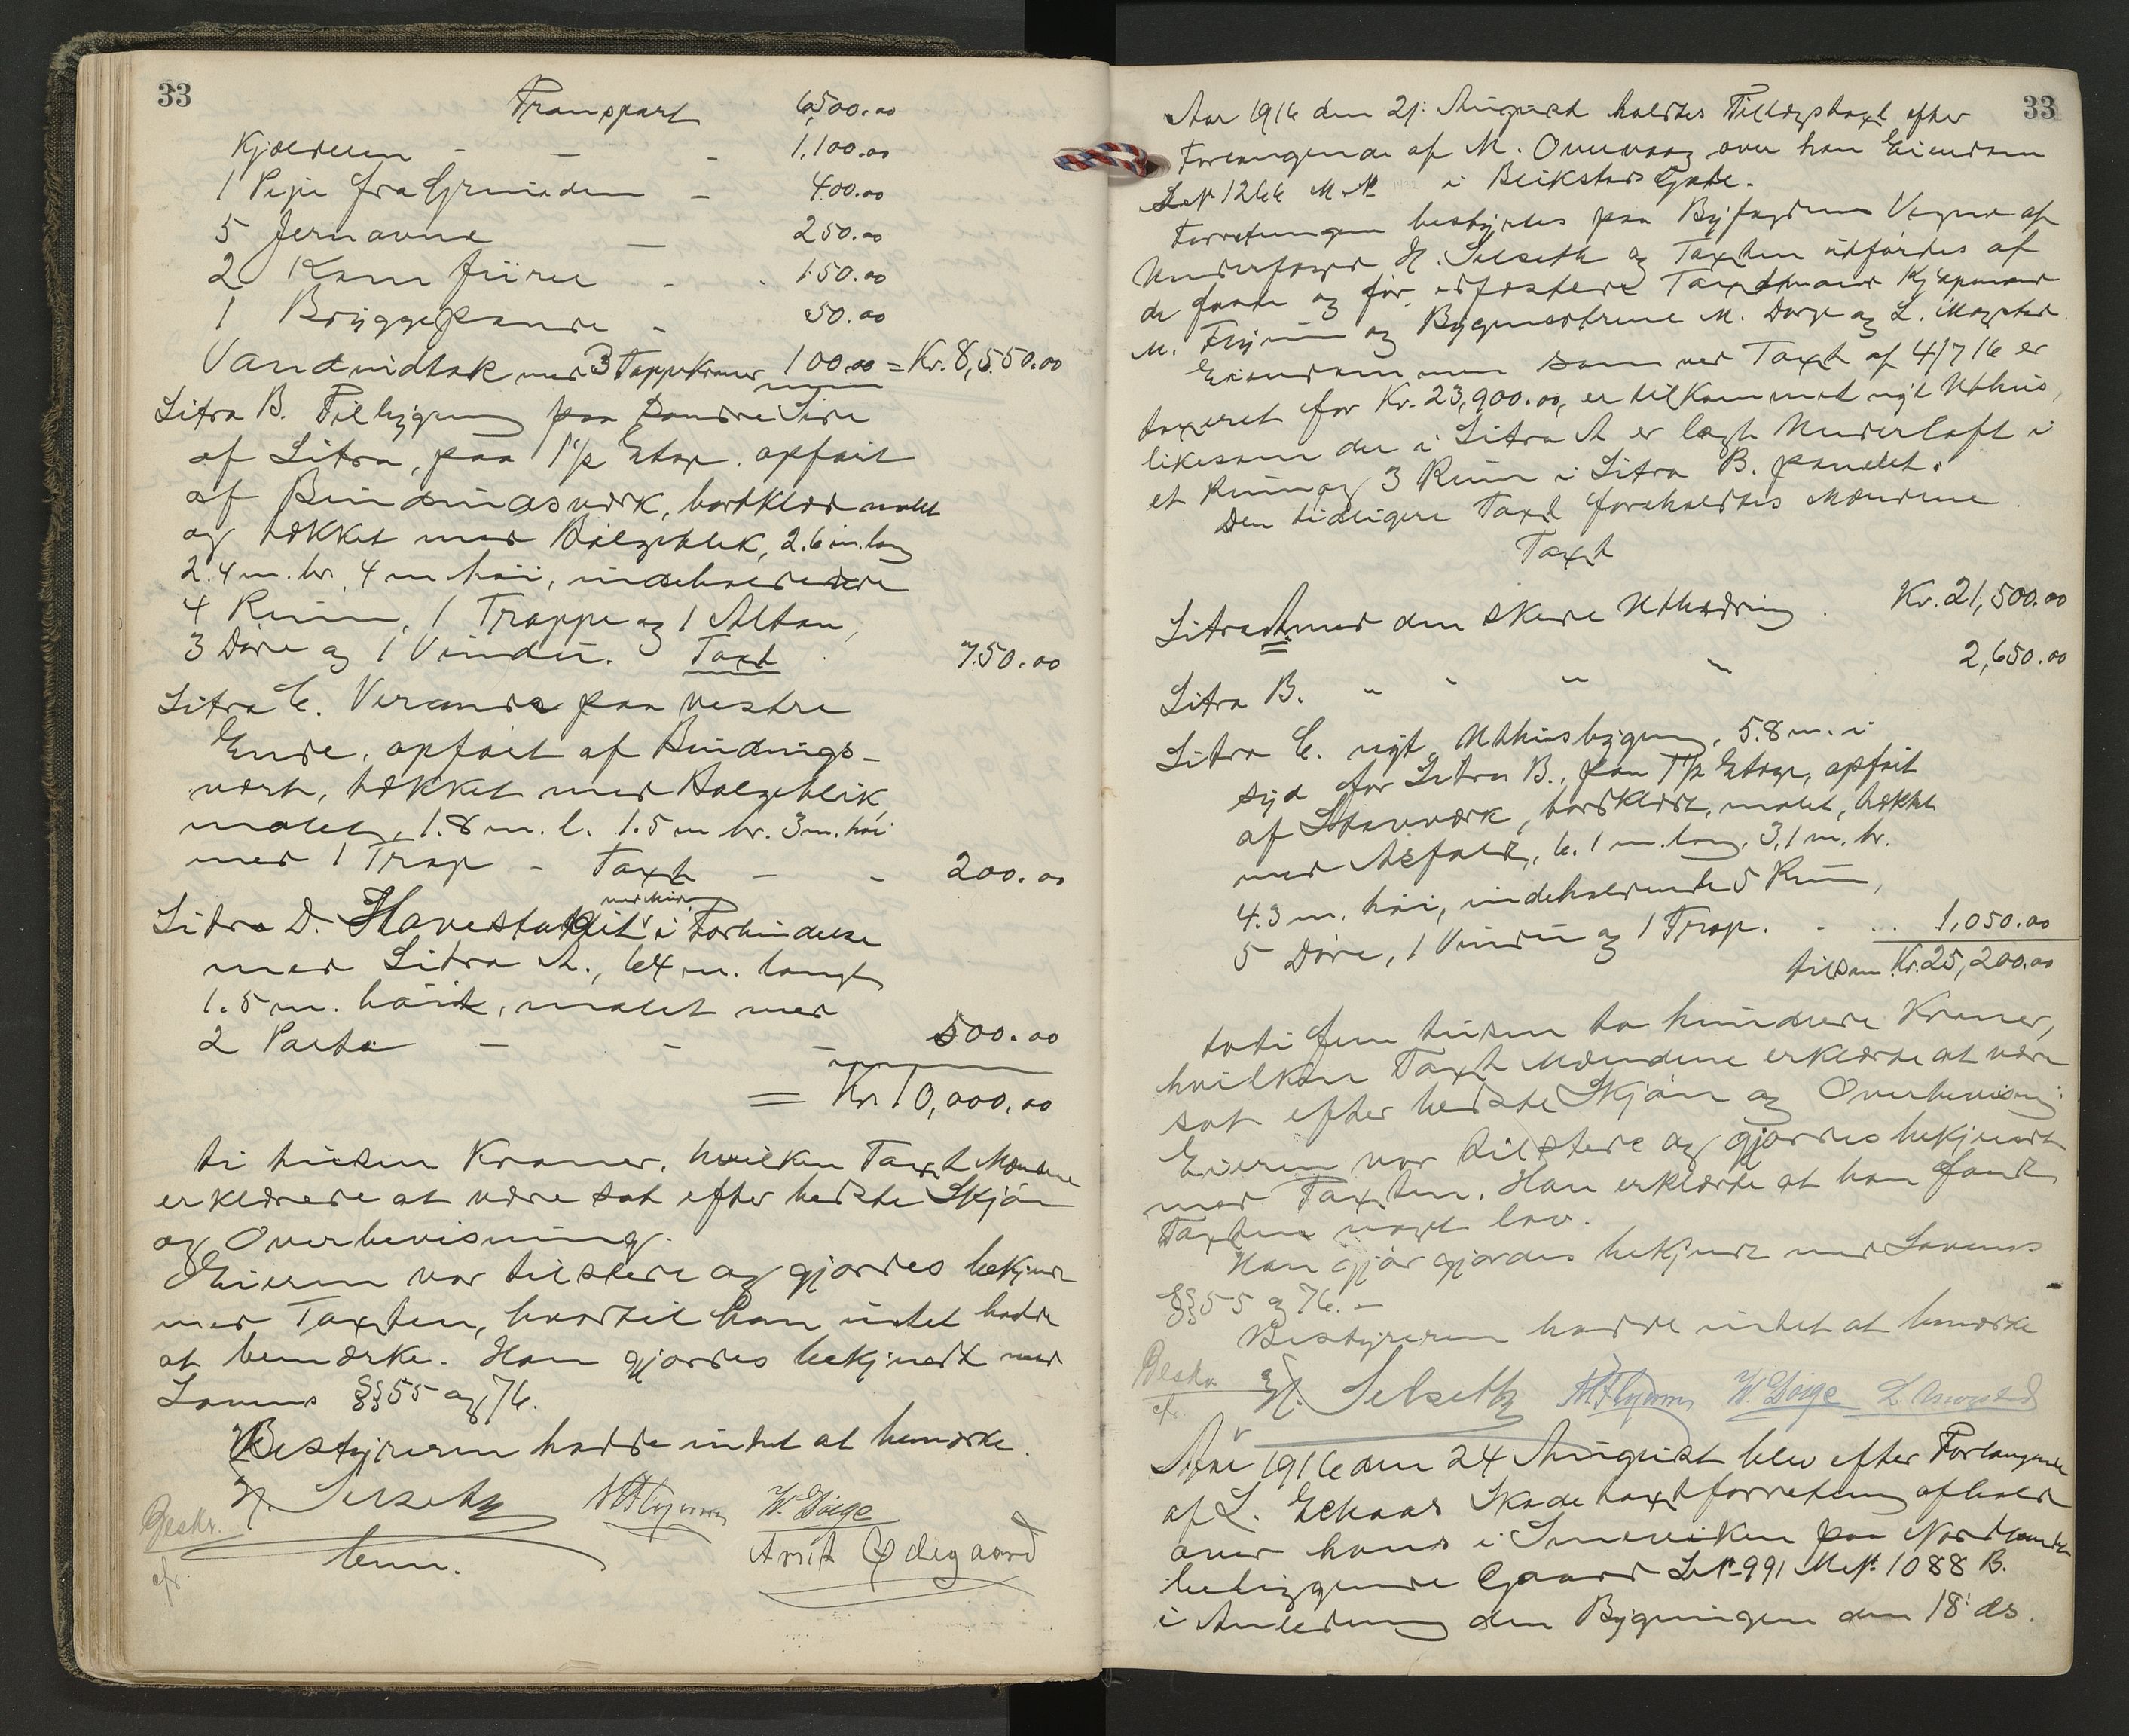 33
Transport 6,500.00
Kjælderen - - - 1,100.00
1 Pipe fra Grunden - 400.00
5 Jernovne - 250.00
2 Komfurer - . 150.00
1 Bryggepande - 50.00
Vandindtak med 3 Tappekraner 100.00 = Kr. 8,550.00
Litra B. Tilbygning paa Søndre Side
af Litra, paa 1½ Etage. opført
af Bindingsverk, bordklæd malet
og tækket med Bølgeblik, 2.6 m. lang
2.4 m. br. 4 m høi, indeholdende
4 Rum, 1 Trappe og 1 Altan,
3 Døre og 1 Vindu. Taxt 750.00
Litra C. Veranda paa vestre
Ende, opført af Bindings-
værk, tækket med Bølgeblik,
malet, 1.8 m. l. 1.5 m br. 3 m. høi
med 1 Trap - Taxt - - 200.00
Litra D. Havestakit i Forbindelse
med Litra A., 64 m. langt
1.5 m. høit, malet med
2 Porte - - - 500.00
= Kr. 10,000.00
ti tusen Kroner, hvilken Taxt Mændene
erklærede at være sat efter bedste Skjøn
og Overbevisning.
Eieren var tilstede og gjordes bekjendt
med Taxten, hvortil han intet hadde
at bemærke. Han gjordes bekjendt med
Lovens §§ 55 og 76.
Bestyreren hadde intet at bemærke.
H. Selseth M Flygum W. Døige
Beskr. Arnt Ødegaard
efr.
33
Aar 1916 den 21: August holdtes Tillægstaxt efter
Forlangende af M. Overvaag over han Eiendom
L.№ 1266 M.№ i Beikstads Gade.
Forretningen bestyrtes paa Byfogdens Vegne af
Underfoged H. Selseth og Taxten utførtes af
de faste og før edfæstede Taxtmænd Kjøpmand
M. Flygum og Bygmestrene M. Døige og L. Mogstad.
Eiendommen som ved Taxt af 4/7 16 er
taxeret for Kr. 23,900.00, er tilkommet nyt Uthus,
likesom der i Litra A er lagt Underloft i
et Rum og 3 Rum i Litra B. panelet.
Den tidligere Taxt foreholdtes Mændene.
Taxt
Litra A. med den skede Utbedring . Kr. 21,500.00
Litra B. " " " " 2,650.00
Litra C. nyt Uthusbygning, 5.8 m. i
syd for Litra B., paa 1½ Etage, opført
af Stavværk, bordklædt, malet, tækket
med Asfalt, 6.1 m. lang, 3,1 m. br.
4.3 m. høi, indeholdende 5 Rum,
5 Døre, 1 Vindu og 1 Trap. - .. 1,050.00
tilsam. Kr. 25,200.00
toti fem tusen to hundrede Kroner,
hvilken Taxt Mændene erklærte at være
sat efter bedste Skjøn og Overbevisning.
Eieren var tilstede og gjordes bekjendt
med Taxten. Han erklærte at han fandt
Taxten noget lav.
Han gjør gjordes bekjendt med Lovens
§§ 55 og 76. -
Bestyreren hadde intet at bemærke
Beskr. H. Selseth M Flygum W. Døige L. Mogstad
efr.
Aar 1916 den 24 August blev efter Forlangende
af L. Skadetaxtforretning afhold
over hans i Smeviken paa Nordlandet
beliggende Gaard L.№ 991 M.№ 1088 B.
i Anledning den Bygningen den 18: ds.